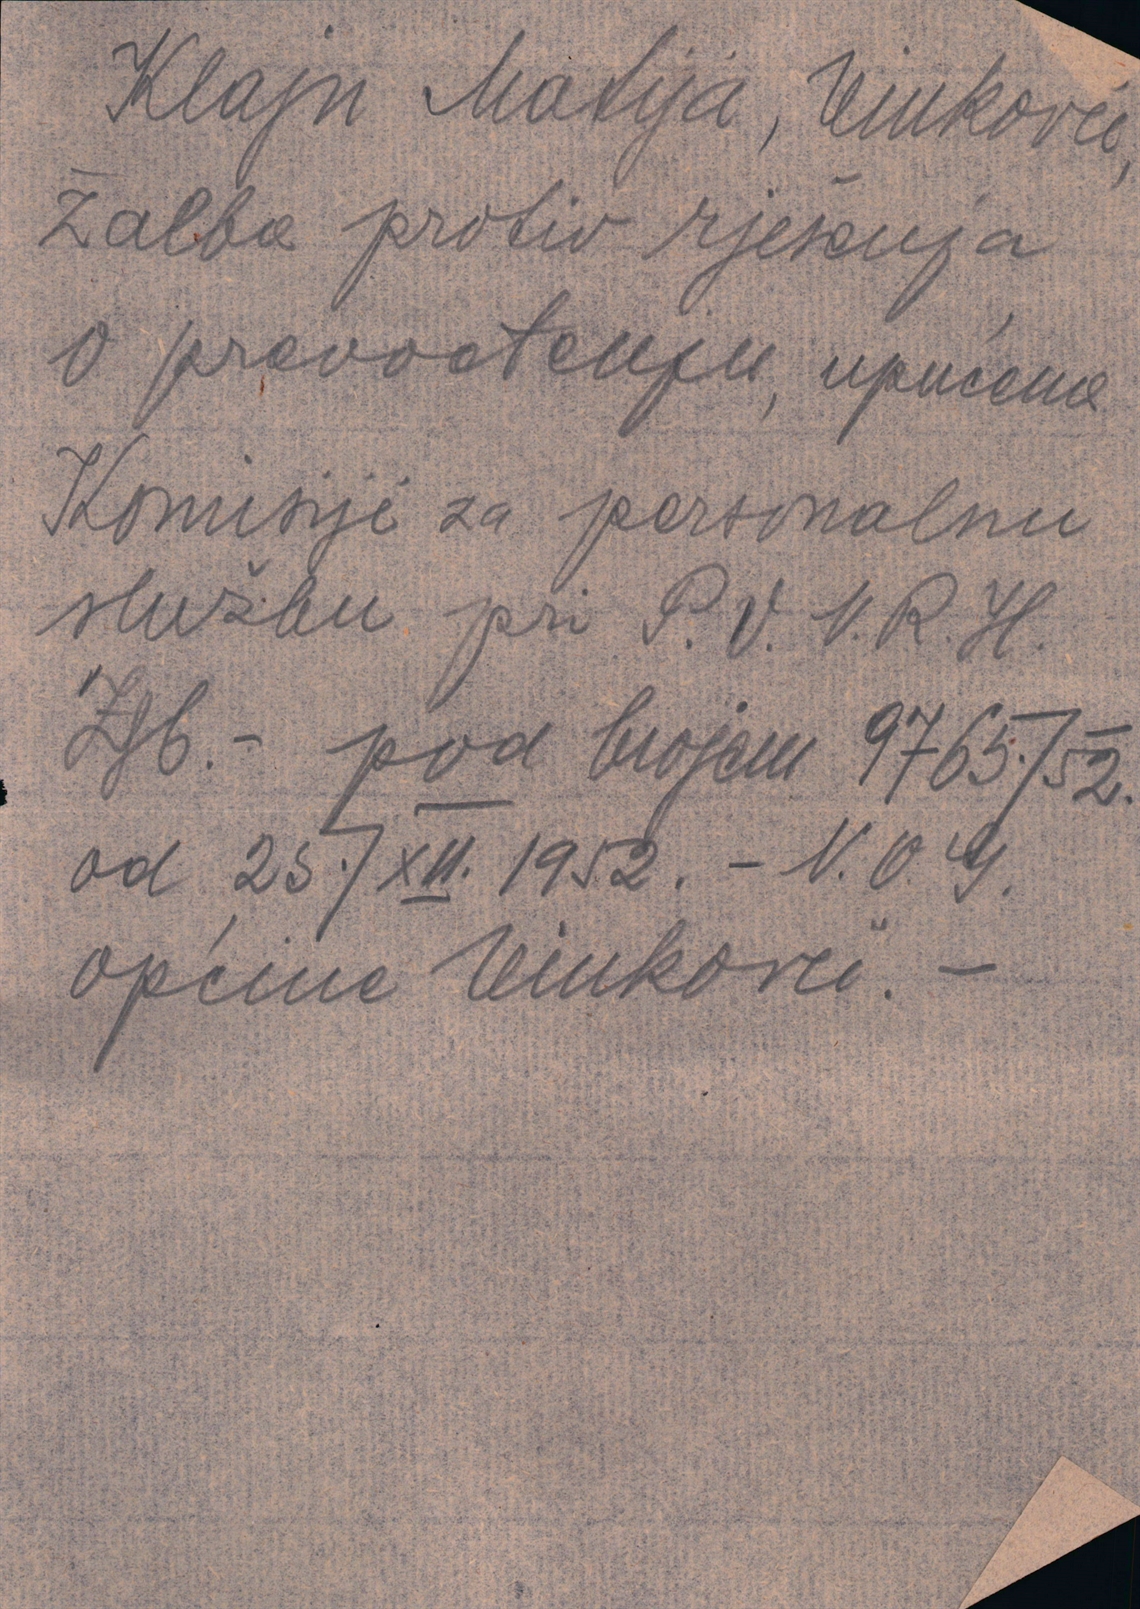 Klajn Matija, Vinkovci,
Žalba protiv rješenja
o prevođenju, upućena
Komisiji za personalnu
službu pri P.V.N.R.H.
Zgb. - pod brojem 9765./52.
od 25./XII. 1952. - N.O. G.
općine Vinkovci. -